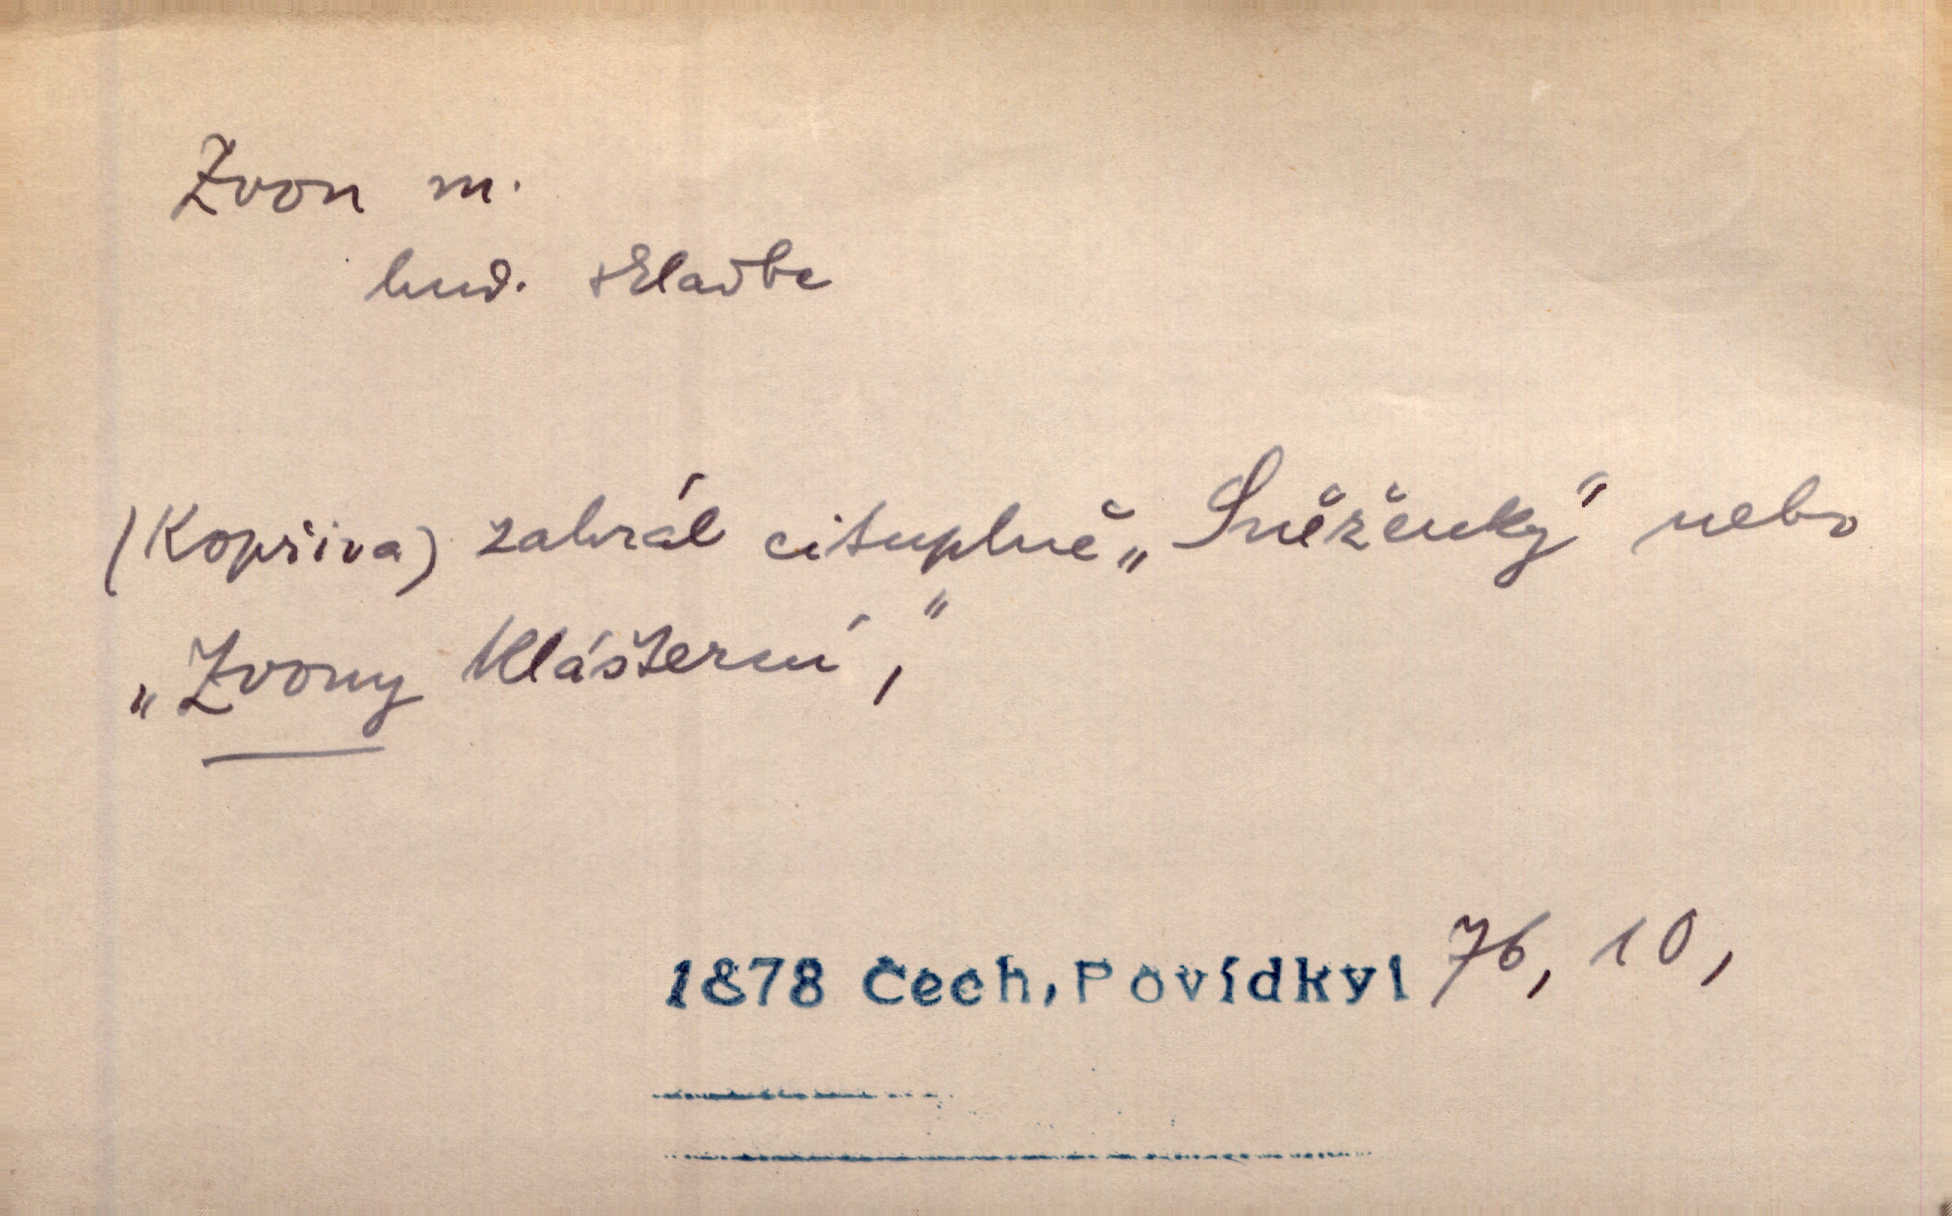 Zvon m.
hud. skladba
(Kopřiva) zahrál cituplně „Sněženky" nebo
„Zvony klášterní,"
1878 Čech, Povídky I 76, 10,